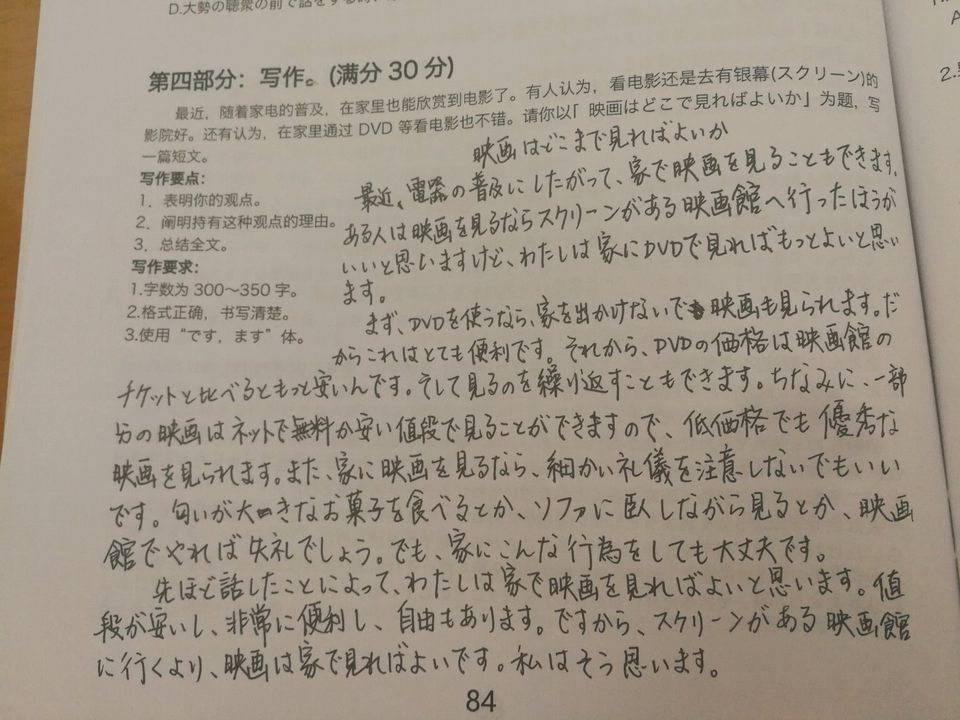 D.大勢の聴衆の前で話をする時、
第四部分：写作。(满分 30 分)
最近，随着家电的普及，在家里也能欣赏到电影了。有人认为，看电影还是去有银幕(スクリーン)的
影院好。还有认为，在家里通过 DVD 等看电影也不错。请你以「映画はどこで見ればよいか」为题，写
一篇短文。
写作要点：
1．表明你的观点。
2．阐明持有这种观点的理由。
3．总结全文。
写作要求：
1.字数为 300～350 字。
2.格式正确，书写清楚。
3.使用“です，ます”体。
映画はどこまで見ればよいか
最近、電器の普及にしたがって、家で映画を見ることもできます。
ある人は映画を見るならスクリーンがある映画館へ行ったほうが
いいと思いますけど、わたしは家にDVDで見ればもっとよいと思い
ます。
まず、DVDを使うなら、家を出かけないで映画も見られます。だ
からこれはとても便利です。それから、DVDの価格は映画館の
チケットと比べるともっと安いんです。そして見るのを繰り返すこともできます。ちなみに、一部
分の映画はネットで無料か安い値段で見ることができますので、低価格でも優秀な
映画を見られます。また、家に映画を見るなら、細かい礼儀を注意しないでもいい
です。匂いが大きなお菓子を食べるとか、ソファに臥しながら見るとか、映画
館でやれば失礼でしょう。でも、家にこんな行為をしても大丈夫です。
先ほど話したことによって、わたしは家で映画を見ればよいと思います。値
段が安いし、非常に便利し、自由もあります。ですから、スクリーンがある映画館
に行くより、映画は家で見ればよいです。私はそう思います。
84
2.